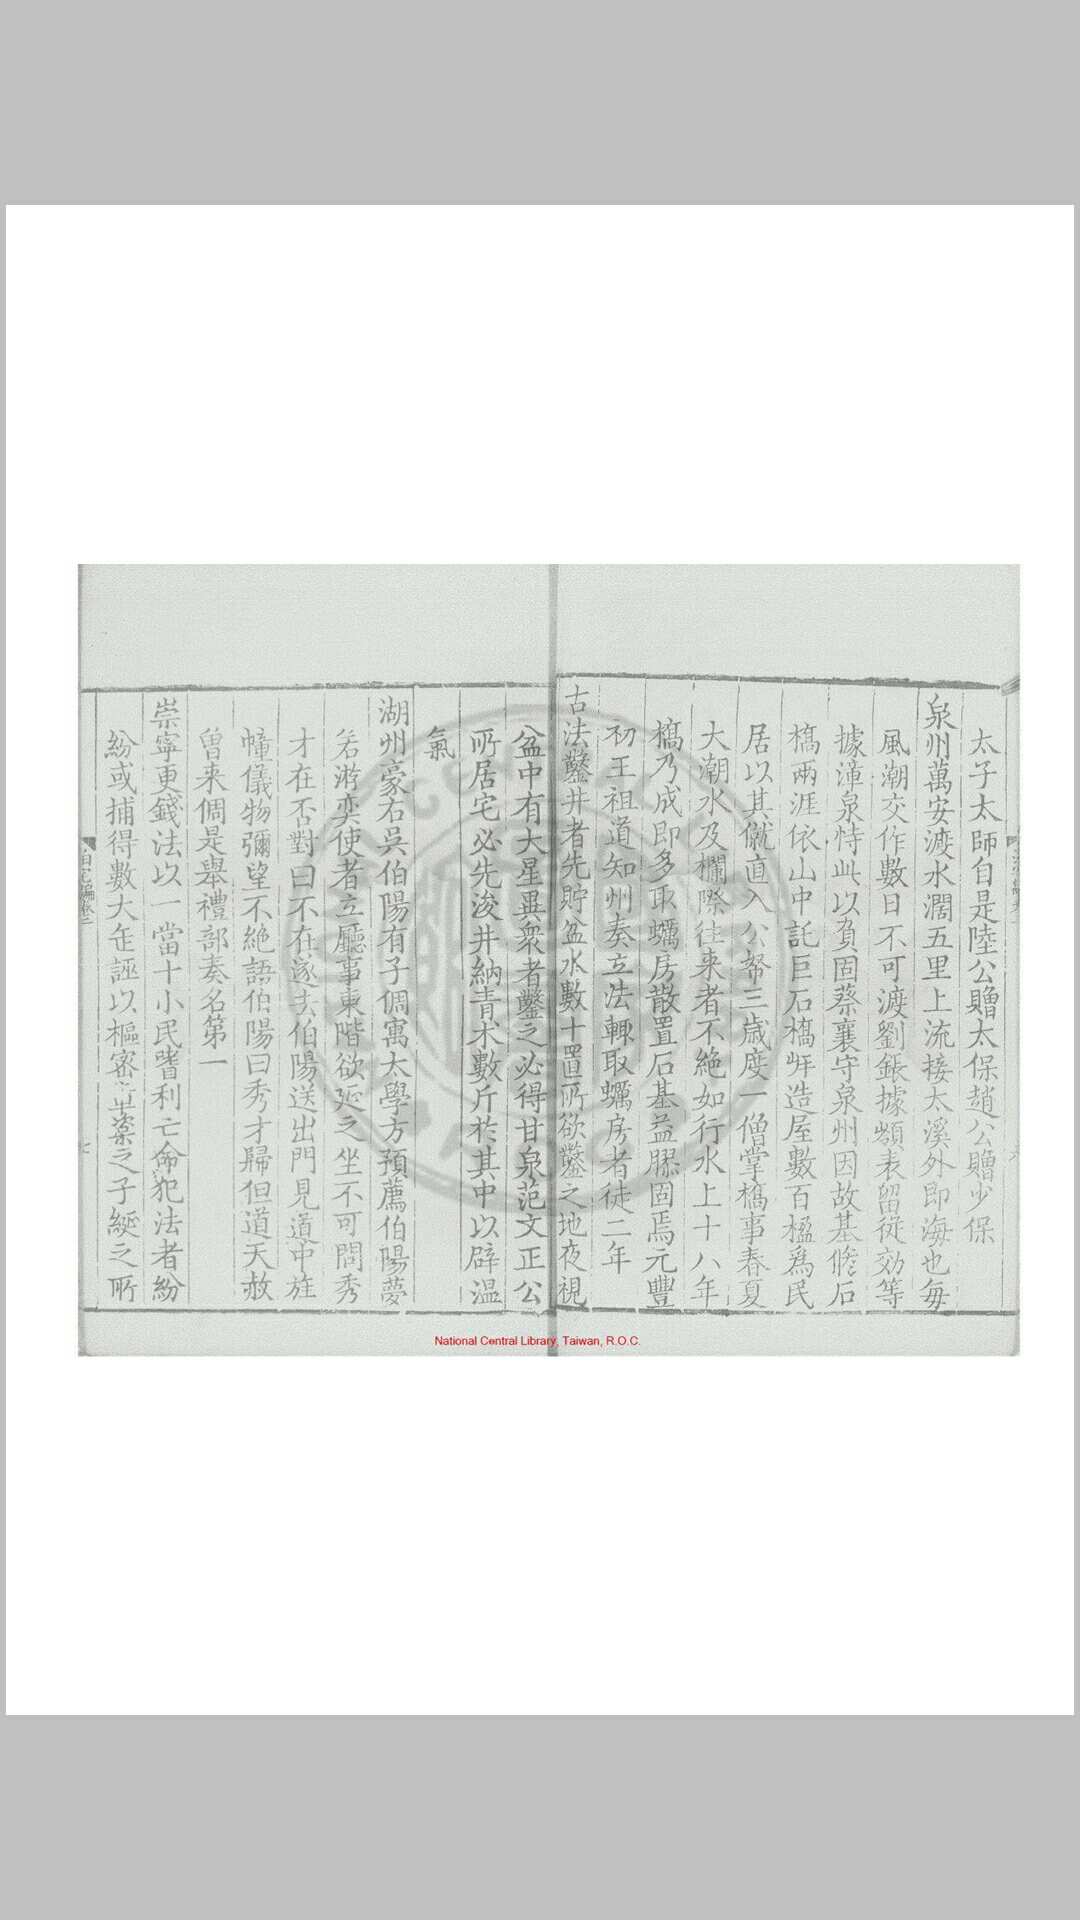 太子太師自是陸公贈太保趙公贈少保
泉州萬安渡水濶五里上流接太溪外即海也每
風潮交作數日不可渡劉鋹據嶺表留從効等
據漳泉恃此以負固蔡襄守泉州因故基修石
橋兩涯依山中託巨石橋岸造屋數百楹為民
居以其僦直入公帑三歲度一僧掌橋事春夏
大潮水及欄際徃來者不絶如行水上十八年
橋乃成即多取蠣房散置石基益膠固焉元豐
初王祖道知州奏立法輒取蠣房者徒二年
古法鑿井者先貯盆水數十置所欲鑿之地夜視
盆中有大星異衆者鑿之必得甘泉范文正公
所居宅必先浚井納青术數斤於其中以辟温
氣
湖州豪右吳伯陽有子倜寓太學方預薦伯陽夢
若游奕使者立廳事東階欲延之坐不可問秀
才在否對曰不在遂去伯陽送出門見道中旌
幢儀物彌望不絶語伯陽曰秀才歸但道天赦
曾来倜是舉禮部奏名第一
崇寧更錢法以一當十小民嗜利亡命犯法者紛
紛或捕得數大缶誣以樞密章楶之子綖之所
泊宅編卷二
七
National Central Library, Taiwan, R.O.C.